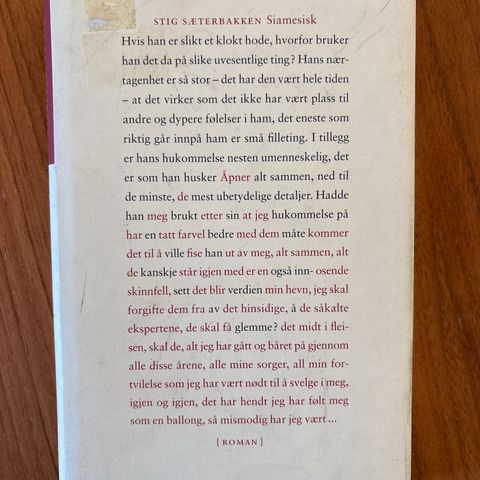 STIG SÆTERBAKKEN Siamesisk
Hvis han er slikt et klokt hode, hvorfor bruker
han det da på slike uvesentlige ting? Hans nær-
tagenhet er så stor – det har den vært hele tiden
– at det virker som det ikke har vært plass til
andre og dypere følelser i ham, det eneste som
riktig går innpå ham er små filleting. I tillegg
er hans hukommelse nesten umenneskelig, det
er som han husker Åpner alt sammen, ned til
de minste, de mest ubetydelige detaljer. Hadde
han meg brukt etter sin at jeg hukommelse på
har en tatt farvel bedre med dem måte kommer
det til å ville fise han ut av meg, alt sammen, alt
de kanskje står igjen med er en også inn- osende
skinnfell, sett det blir verdien min hevn, jeg skal
forgifte dem fra av det hinsidige, å de såkalte
ekspertene, de skal få glemme? det midt i flei-
sen, skal de, alt jeg har gått og båret på gjennom
alle disse årene, alle mine sorger, all min for-
tvilelse som jeg har vært nødt til å svelge i meg,
igjen og igjen, det har hendt jeg har følt meg
som en ballong, så mismodig har jeg vært ...
[ROMAN]